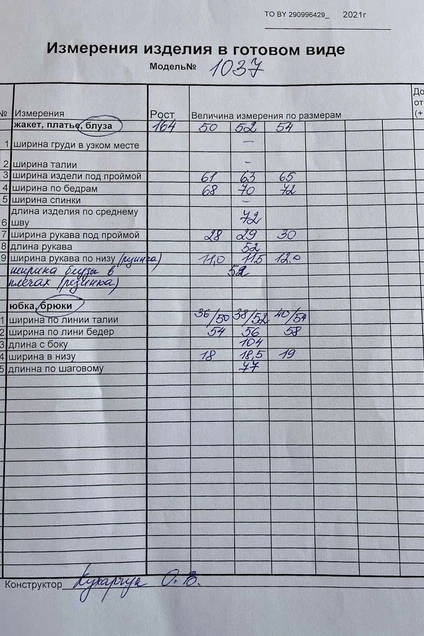 ТО BY 290996429_ 2021г
Измерения изделия в готовом виде
Модель№ 1037
№ Измерения Рост Величина измерения по размерам До
от
(+
жакет, платье, блуза 164 50 52 54
1 ширина груди в узком месте –
2 ширина талии –
3 ширина издели под проймой 61 63 65
4 ширина по бедрам 68 70 72
5 ширина спинки –
длина изделия по среднему
6 шву 72
7 ширина рукава под проймой 28 29 30
8 длина рукава 52
9 ширина рукава по низу (резинка) 11,0 11,5 12,0
ширина блузы в 52
плечах (резинка)
юбка, брюки
1 ширина по линии талии 36/50 38/52 40/54
2 ширина по лини бедер 54 56 58
3 длина с боку 104
4 ширина в низу 18 18,5 19
5 длинна по шаговому 77
Конструктор Кухарчук О.В.